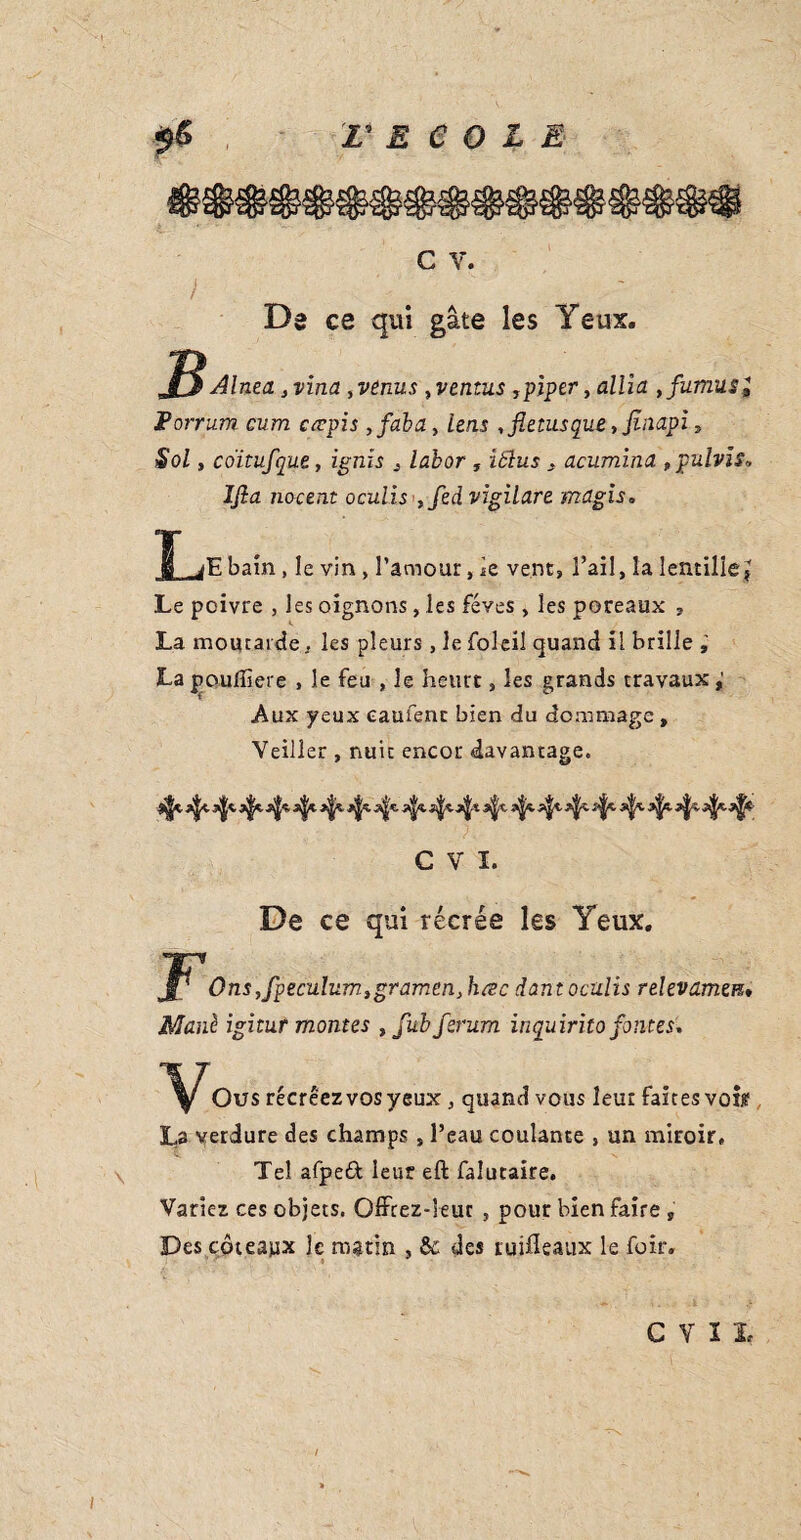 96 L'ECOLE
C V.
De ce qui gâte les Yeux.
BAlnea, vina, venus, ventus, piper, allia, fumus;
Porrum cum cæpis, faba, lens, fletusque, ſinapi,
Sol, coïtuſque, ignis, labor, iĉtus, acumina, pulvis,
Iſta nocent oculis, ſed vigilare magis.
LE bain, le vin, l'amour, le vent, l'ail, la lentille;
Le poivre, les oignons, les féves, les poreaux,
La moutarde, les pleurs, le ſoleil quand il brille,
La pouſſiere, le feu, le heurt, les grands travaux,
Aux yeux cauſent bien du dommage,
Veiller, nuit encor davantage.
C V I.
De ce qui récrée les Yeux.
FOns, ſpeculum, gramen, hæc dant oculis relevamen.
Manè igitur montes, ſub ſerum inquirito fontes.
VOus récréez vos yeux, quand vous leur faites voir
La verdure des champs, l'eau coulante, un miroir.
Tel aſpect leur eſt ſalutaire.
Variez ces objets. Offrez-leur, pour bien faire,
Des côteaux le matin, & des ruiſſeaux le ſoir.
C V I I.